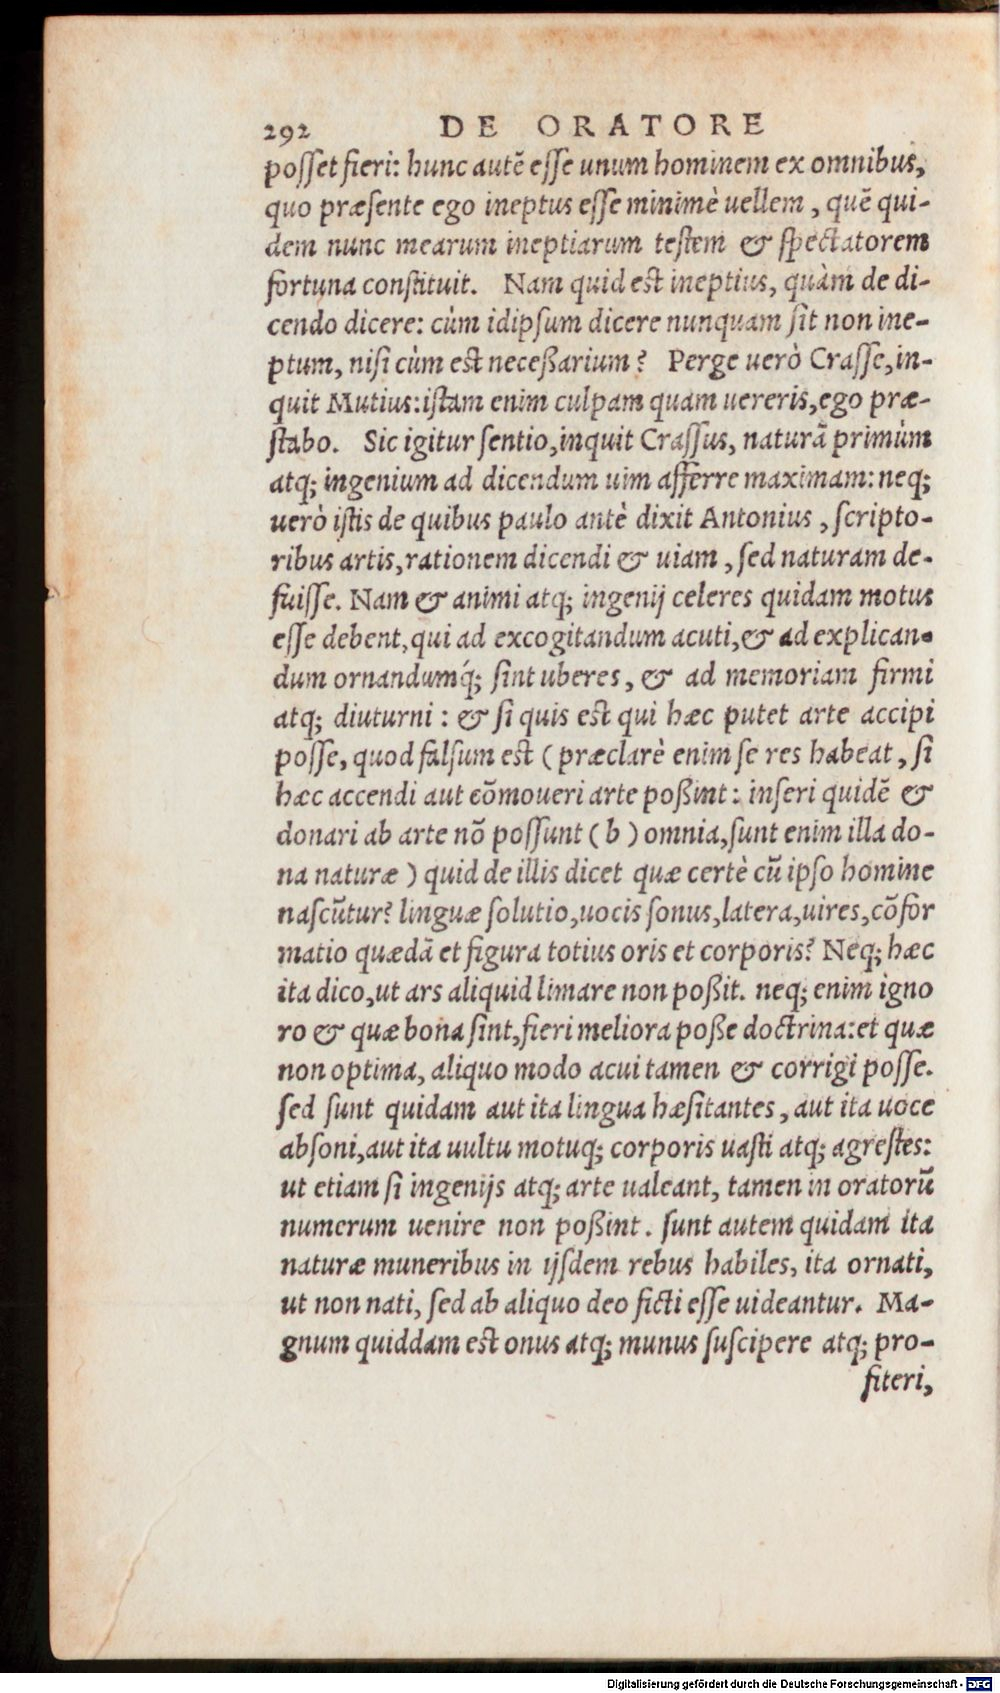 292 DE ORATORE
posset fieri: hunc autē esse unum hominem ex omnibus,
quo præsente ego ineptus esse minimè uellem, quē qui-
dem nunc mearum ineptiarum testem & spectatorem
fortuna constituit. Nam quid est ineptius, quàm de di-
cendo dicere: cùm idipsum dicere nunquam sit non ine-
ptum, nisi cùm est neceßarium? Perge uerò Crasse, in-
quit Mutius: istam enim culpam quam uereris, ego præ-
stabo. Sic igitur sentio, inquit Crassus, naturā primùm
atq; ingenium ad dicendum uim afferre maximam: neq;
uerò istis de quibus paulo antè dixit Antonius, scripto-
ribus artis, rationem dicendi & uiam, sed naturam de-
fuisse. Nam & animi atq; ingenij celeres quidam motus
esse debent, qui ad excogitandum acuti, & ad explican-
dum ornandumq́; sint uberes, & ad memoriam firmi
atq; diuturni: & si quis est qui hæc putet arte accipi
posse, quod falsum est (præclarè enim se res habeat, si
hæc accendi aut cōmoueri arte poßint: inseri quidē &
donari ab arte nō possunt (b) omnia, sunt enim illa do-
na naturæ) quid de illis dicet quæ certè cū ipso homine
nascūtur? linguæ solutio, uocis sonus, latera, uires, cōfor
matio quædā et figura totius oris et corporis? Neq; hæc
ita dico, ut ars aliquid limare non poßit. neq; enim igno
ro & quæ bona sint, fieri meliora poße doctrina: et quæ
non optima, aliquo modo acui tamen & corrigi posse.
sed sunt quidam aut ita lingua hæsitantes, aut ita uoce
absoni, aut ita uultu motuq; corporis uasti atq; agrestes:
ut etiam si ingenijs atq; arte ualeant, tamen in oratorū
numerum uenire non poßint. sunt autem quidam ita
naturæ muneribus in ijsdem rebus habiles, ita ornati,
ut non nati, sed ab aliquo deo ficti esse uideantur. Ma-
gnum quiddam est onus atq; munus suscipere atq; pro-
fiteri,
Digitalisierung gefördert durch die Deutsche Forschungsgemeinschaft - DFG